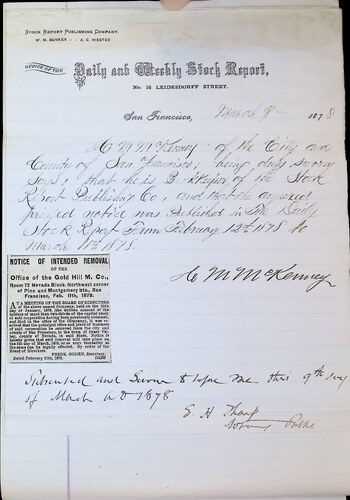 STOCK REPORT PUBLISHING COMPANY.
W. M. BUNKER A. C. HIESTER
OFFICE OF THE
Daily and Weekly Stock Report,
No. 16 LEIDESDORFF STREET.
San Francisco, March 9 1878
C M McKenney of the City and
County of San Francisco, being duly sworn
Says; that he is Bookkeeper of the Stock
Report Publishing Co, and that the annexed
printed notice was Published in The Daily
Stock Report From February 12th 1878 to
March 1878.
C M McKenney
NOTICE OF INTENDED REMOVAL
OF THE
Office of the Gold Hill M. Co.,
Room 72 Nevada Block, Northwest corner
of Pine and Montgomery sts., San
Francisco, Feb. 11th, 1878.
AT A MEETING OF THE BOARD OF DIRECTORS
of the above named Company, held
January, 1878, the written consent of the
holders of more than two-thirds of the capital stock
of said corporation having been
filed in the office of the Company, it was
ordered that the principal office and place of business
of said corporation be removed from the city and
county of San Francisco, to the town of Gold Hill,
county of Nevada, is said State. Notice is
hereby given that said removal will take place on
the day of March, 1878, or as soon thereafter as
the same can be legally effected. By order of the
Board of Directors.
FREDK. OGDEN, Secretary.
Dated February 11th, 1878.
Subscribed and Sworn to before me this 9th day
of March AD 1878
E. H. Tharp
Notary Public